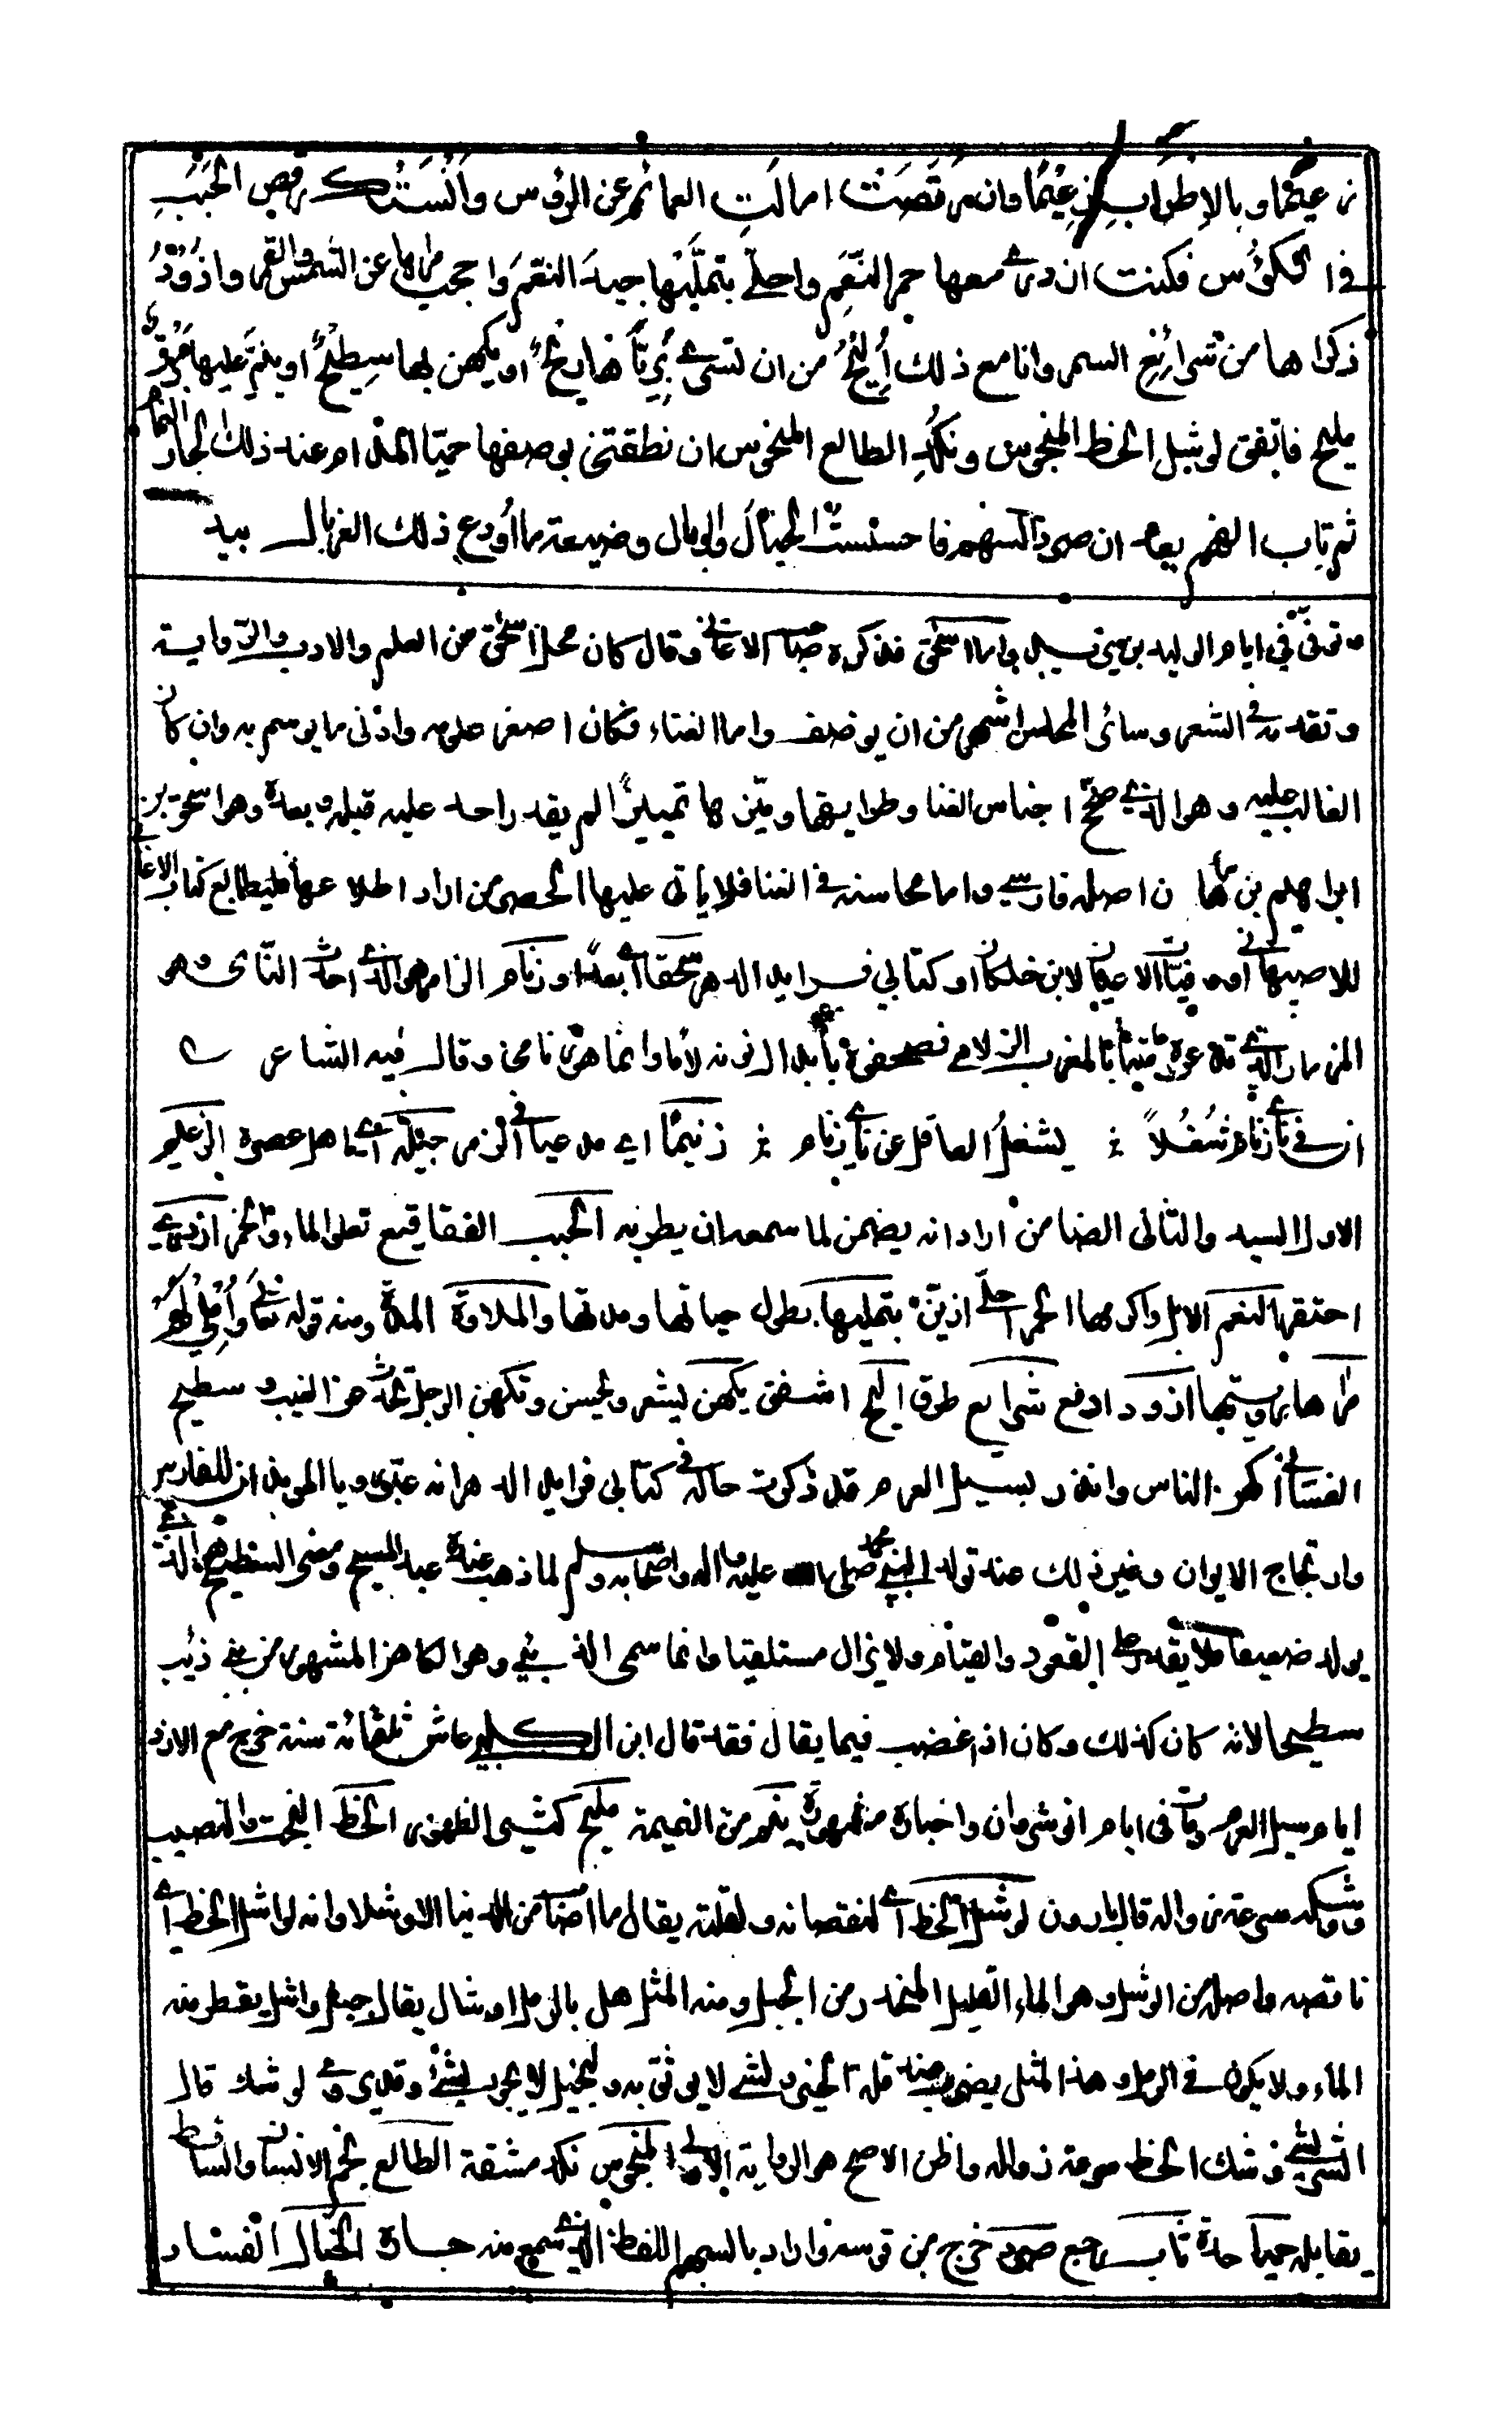 زعيما وبالاطراب زعيما وان رقصت امالت العمائم عن الرؤس وانستك رقص الحبب
في الكؤس فكنت ازدري معها حمر النعم واحلي بتمليها جيد النعم واحجب مراها عن الشمس والقمر واذود
ذكراها من شرائع السمر وانا مع ذلك اليح من ان تسري برياها ريح او يكهن بها سطيح او ينم عليها برق
مليح فاتفق لوشل الحظ المبخوس ونكد الطالع المنحوس ان نطقتني بوصفها حميا المدام عند ذلك الجار النمام
ثم ثاب الفهم بعد ان صرد السهم فاحسست الخبال والوبال وضيعة ما اودع ذلك الغربال بيد
توفي في ايام الوليد بن يزيد واما اسحق فذكره صاحب الاغاني وقال كان محل اسحق من العلم والادب والرواية
وتقدمه في الشعر وسائر المحاسن اشهر من ان يوصف واما الغناء فكان اصغر علومه وادنى ما يوسم به وان كان
الغالب عليه وهو الذي صحح اجناس الغنا وطرايقها وميزها تمييزا لم يقدر احد عليه قبله ولا بعده وهو اسحق بن
ابراهيم بن ماهان اصله فارسي واما محاسنه في الغنا فلا ياتي عليها الحصر من اراد اطلاعها فليطالع كتاب الاغاني
للاصبهاني او وفيات الاعيان لابن خلكان او كتابي فرايد الدهر سحقا اي بعدا وزنام الزامر هو الذي احدث الناي وهو
المزمار الذي تدعوه بالمغرب الزلامي فصحفوه بابدال نونه لاما وانما هو زنامي وقال فيه الشاعر
ان في ناي زنام شغلا يشغل العاقل عن ناي زنام زنيما اي مدعيا في الزمر جيله اي اهل عصره الزعيم
الاول السيد والثاني الضامن اراد انه يضمن لما سمعه ان يطربه الحبب الفقاقيع تعلو الماء والخمر ازدري
احتقر النعم الابل واكرمها الحمر احلي ازين بتمليها بطول حياتها ومدتها والملاوة المدة ومنه قوله تعالى واملي لهم
مراها رؤيتها اذود ادفع شرايع طرق اليح اشفق يكهن يشعر ويحس وتكهن الرجل تحدث عن الغيب وسطيح
الغساني اكهن الناس وانذر بسيل العرم قد ذكرت حاله في كتابي فرايد الدهر انه عبر رويا الموبذان للفارس
وارتجاج الايوان وغير ذلك عند تولد النبي محمد صلى الله عليه واله واصحابه وسلم لما ذهب عنده عبد المسيح ومعنى السطيح هو الذي
يولد ضعيفا فلا يقدر على القعود والقيام ولا يزال مستلقيا وانما سمي الذئبي وهو الكاهن المشهور من بني ذئب
سطيحا لانه كان كذلك وكان اذا غضب فيما يقال فقد قال ابن الكلبي عاش ثلثمائة سنة خرج مع الازد
ايام سيل العرم ومات في ايام انوشروان واخباره مشهورة ينم من النميمة مليح كثير الظهور الحظ البخت والنصيب
ووشكه سرعته زواله قال لوشل الحظ اي لنقصانه ولقلته يقال ما اصاب من الدنيا الا وشلا وانه لواشل الحظ اي
ناقصه واصله من الوشل وهو الماء القليل المنحدر من الجبل ومنه المثل هل بالرمل اوشال يقال جبل واشل يقطر منه
الماء ولا يكون في الرمل وهذا المثل يضرب عند قلة الخير ولشيء لا يوثق به ولبخيل لا يجود بشيء وقد روي لوشك قال
الشريشي وشك الحظ سرعة زواله واظن الاصح هو الرواية الاولى المبخوس نكد مشقة الطالع نجم الانسان والساقط
يقابله حميا حدة ثاب رجع صرد خرج من قوسه واراد بالسهم اللفظ الذي سمع منه جاره الخبال الفساد